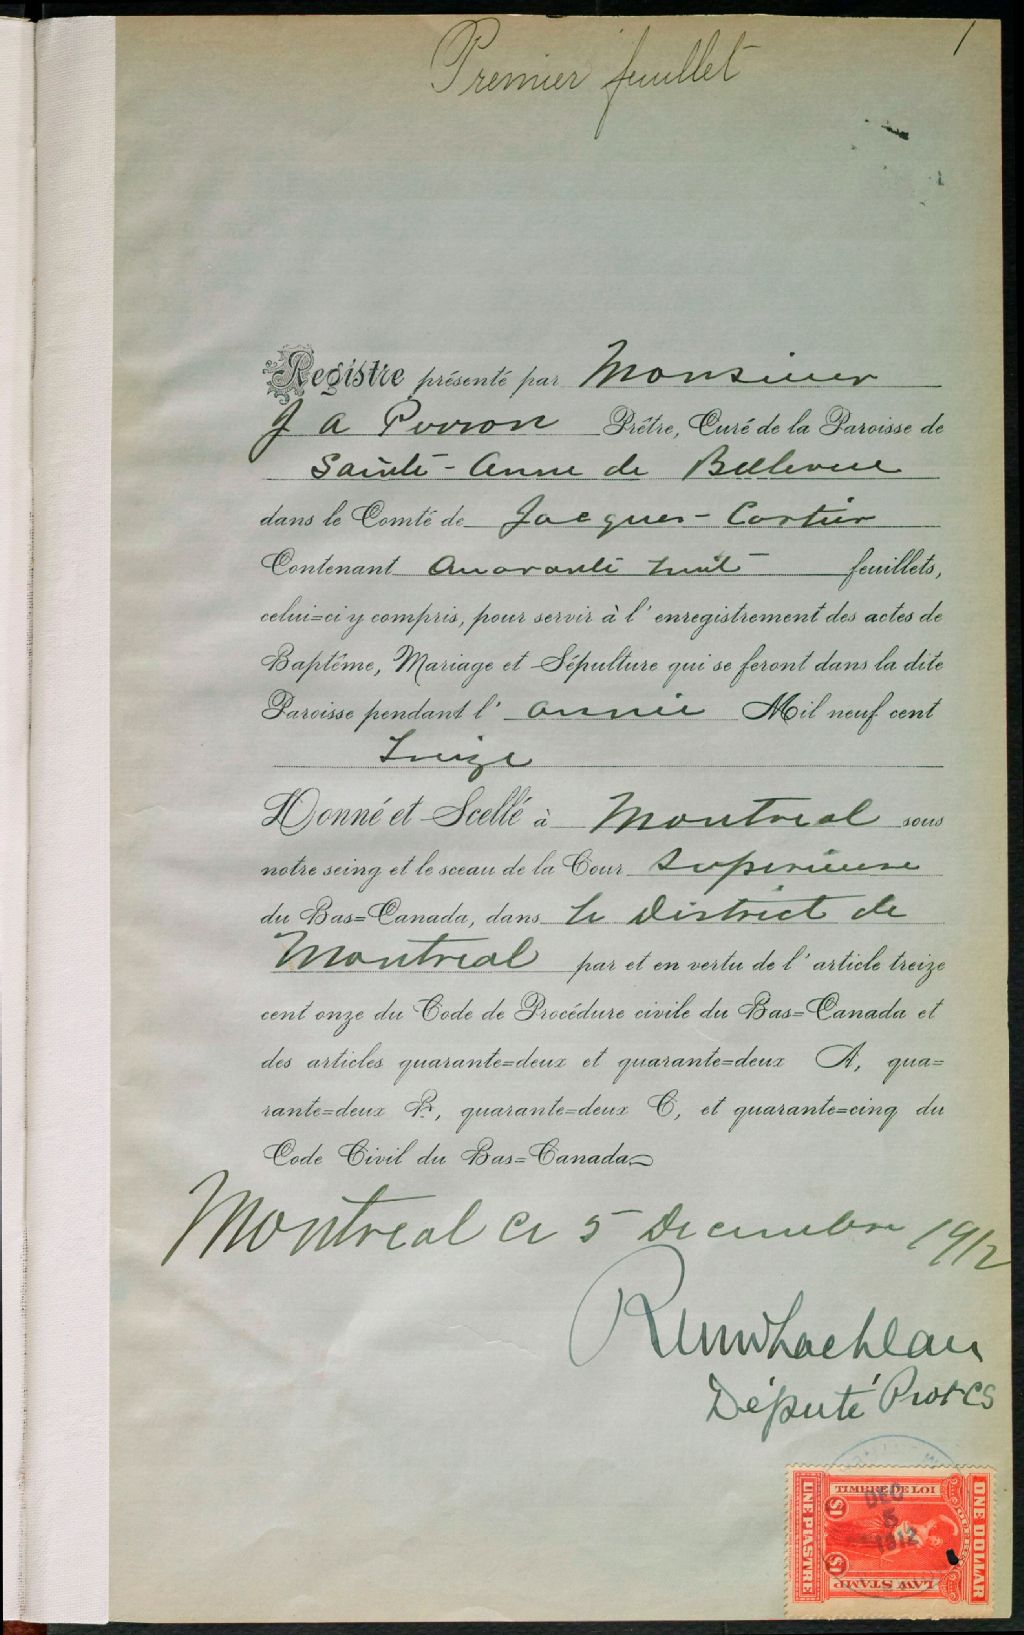 Premier feuillet
1
Registre présenté par Monsieur
J A Perron Prêtre, Curé de la Paroisse de
Sainte-Anne de Bellevue
dans le Comté de Jacques-Cartier
Contenant Quarante huit feuillets,
celui=ci y compris, pour servir à l'enregistrement des actes de
Baptême, Mariage et Sépulture qui se feront dans la dite
Paroisse pendant l'année Mil neuf cent
treize
Donné et Scellé à Montreal sous
notre seing et le sceau de la Cour Superieure
du Bas=Canada, dans le District de
Montreal par et en vertu de l'article treize
cent onze du Code de Procédure civile du Bas=Canada et
des articles quarante=deux et quarante=deux A, qua=
rante=deux B, quarante=deux C, et quarante=cinq du
Code Civil du Bas=Canada
Montreal ce 5 Decembre 1912
Député Prot CS
TIMBRE DE LOI
UNE PIASTRE
ONE DOLLAR
$1 $1
LAW STAMP
DEC
5
1912